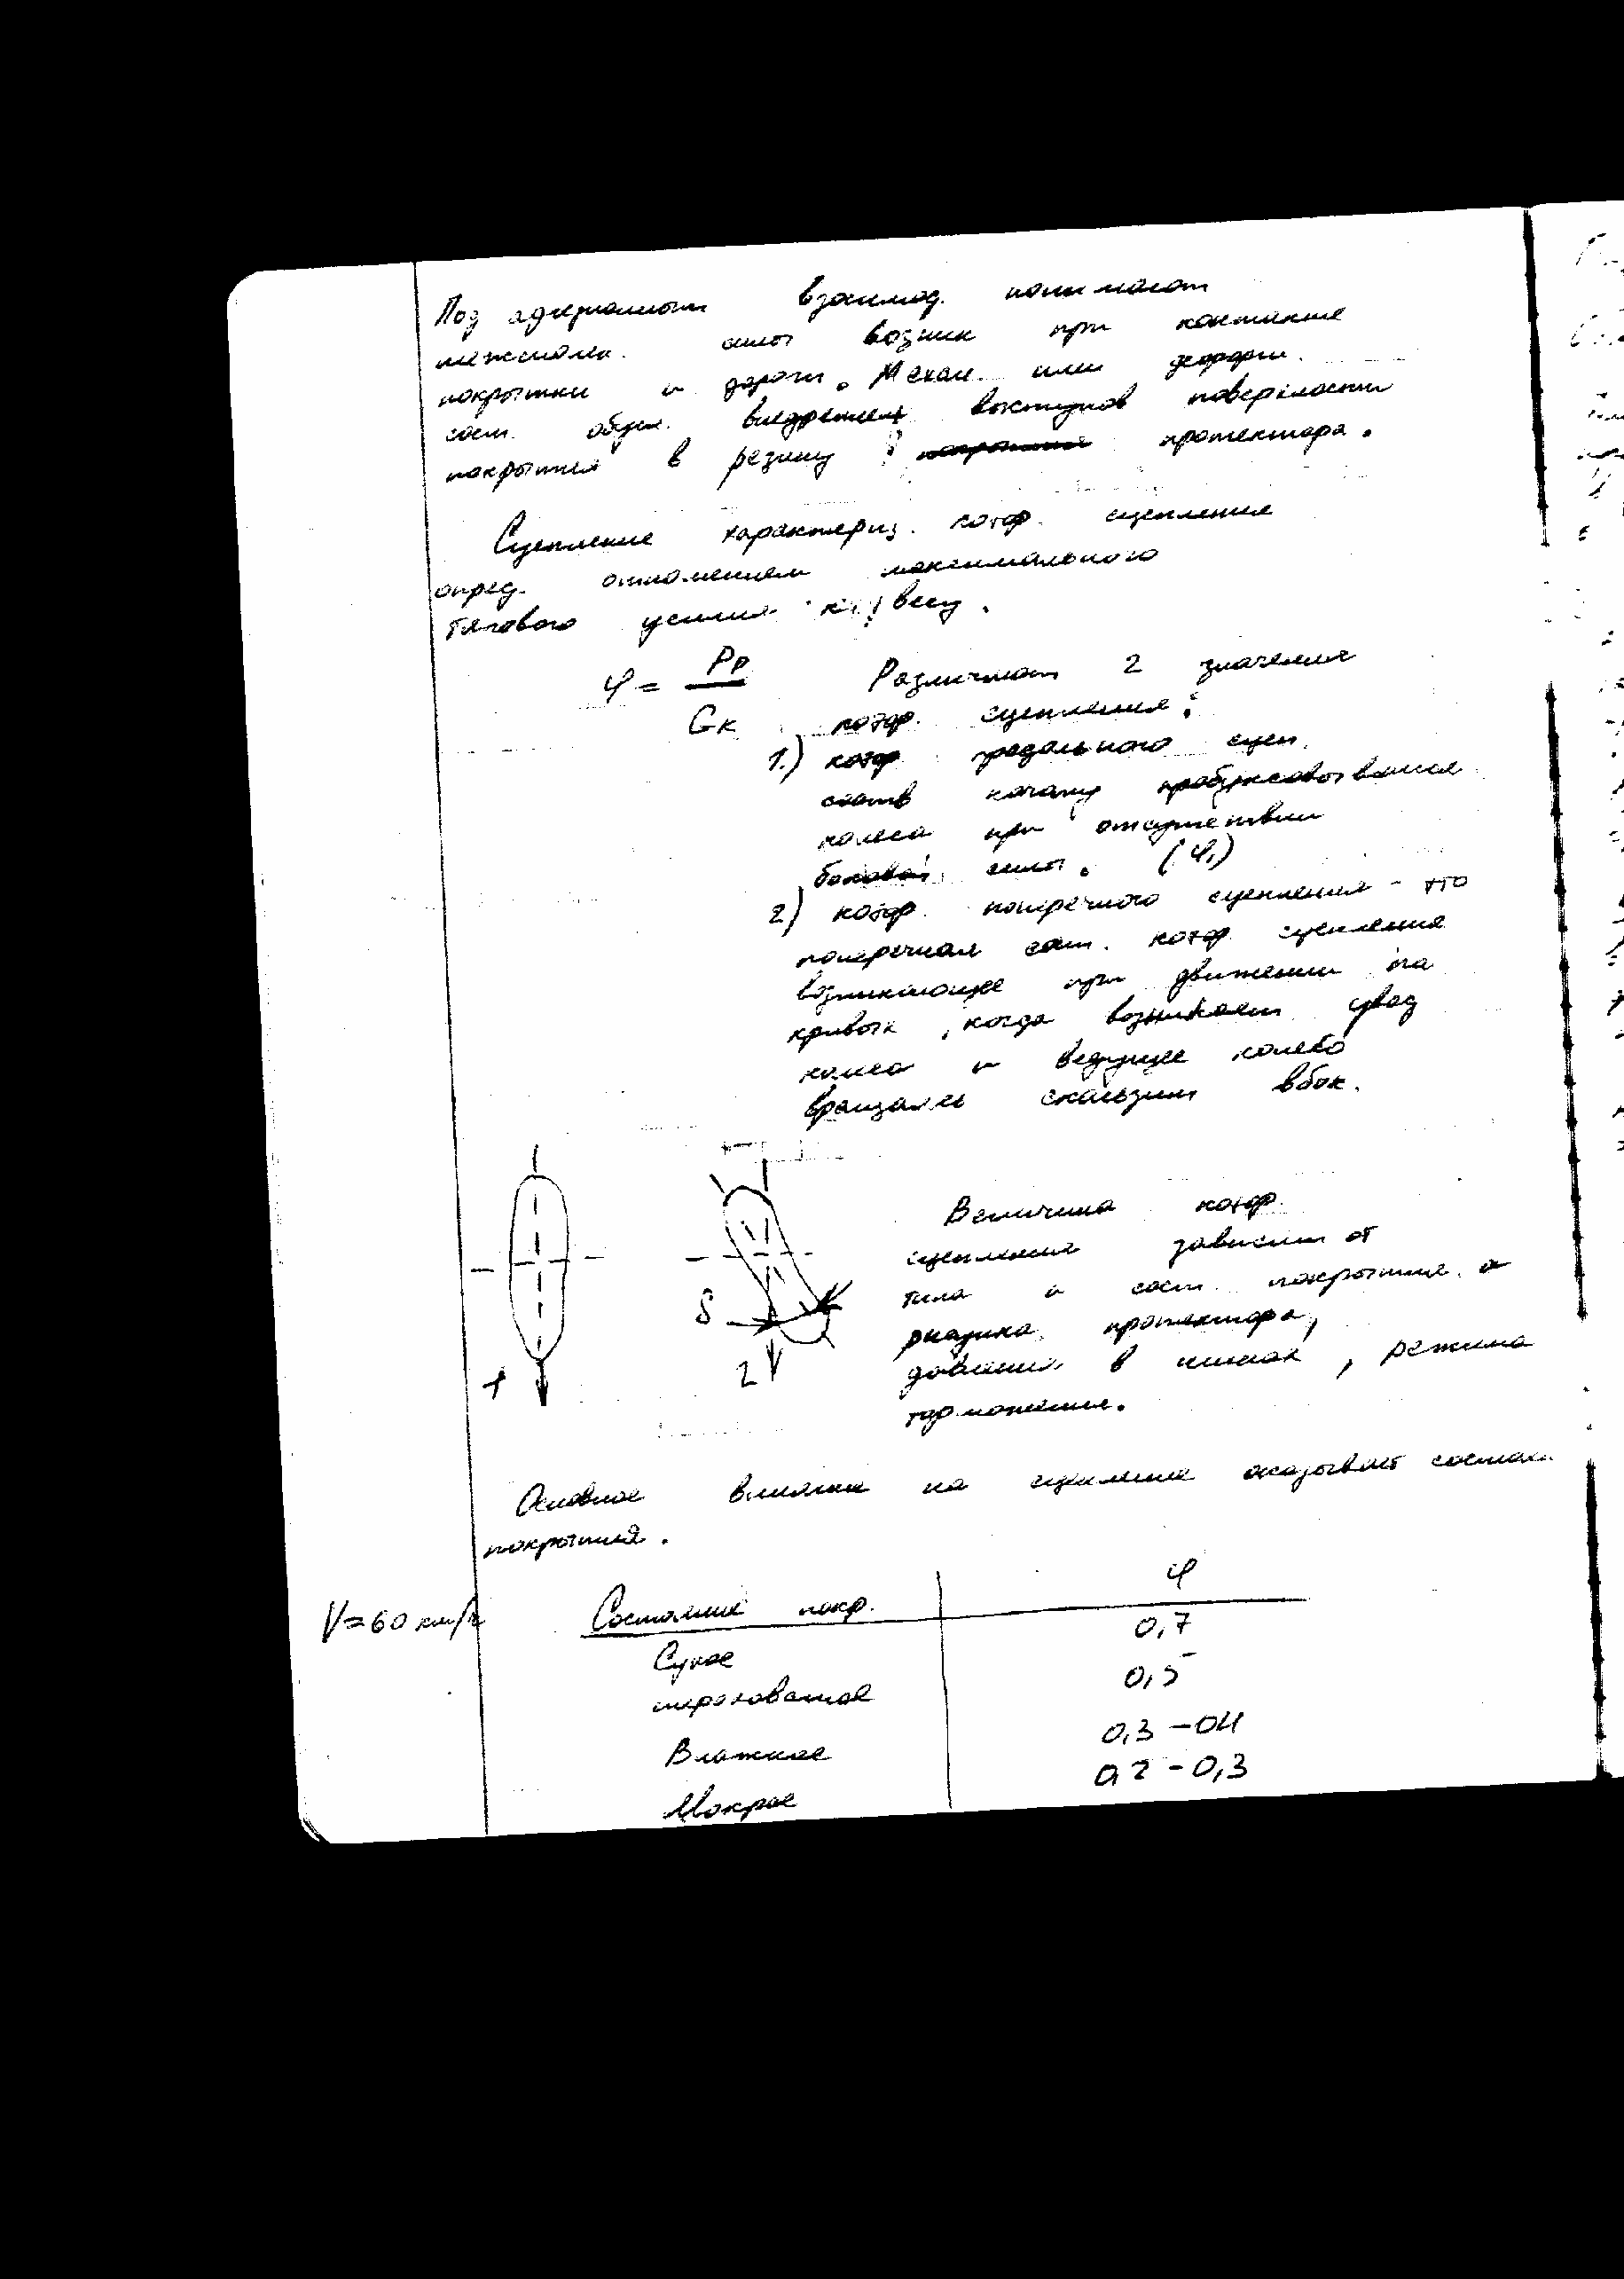 Под адгезионным взаимод. понимают
межмолек. силы возник при контакте
покрышки и дороги. Механ. или деформ.
сост. обусл. внедрением выступов поверхности
покрытия в резину протектора.
Сцепление характериз. коэф. сцепления
опред. отношением максимального
тягового усилия к весу.
φ = Pр / Gк
Различают 2 значения
коэф. сцепления:
1.) коэф. продольного сцеп.
соотв началу пробуксовывания
колеса при отсутствии
боковой силы. (φ₁)
2) коэф. поперечного сцепления - это
поперечная сост. коэф. сцепления
возникающее при движении на
кривых, когда возникает увод
колеса и ведущее колесо
вращаясь скользит вбок.
1
δ
2
Величина коэф.
сцепления зависит от
типа и сост. покрытия, а
рисунка протектора,
давления в шинах, режима
торможения.
Основное влияние на сцепление оказывает состоян.
покрытия.
V=60 км/ч
Состояние покр. φ
Сухое 0,7
шероховатое 0,5
Влажное 0,3 - 04
Мокрое 0,2 - 0,3